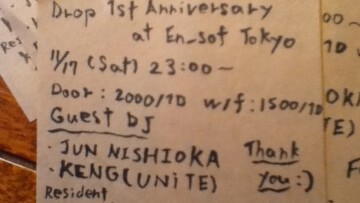 Drop 1st Anniversary
at En_sof Tokyo
11/17 (Sat) 23:00~
Door: 2000/1D w/f: 1500/1D
Guest DJ
・JUN NISHIOKA
・KENG(UNiTE)
Thank
you :)
Resident